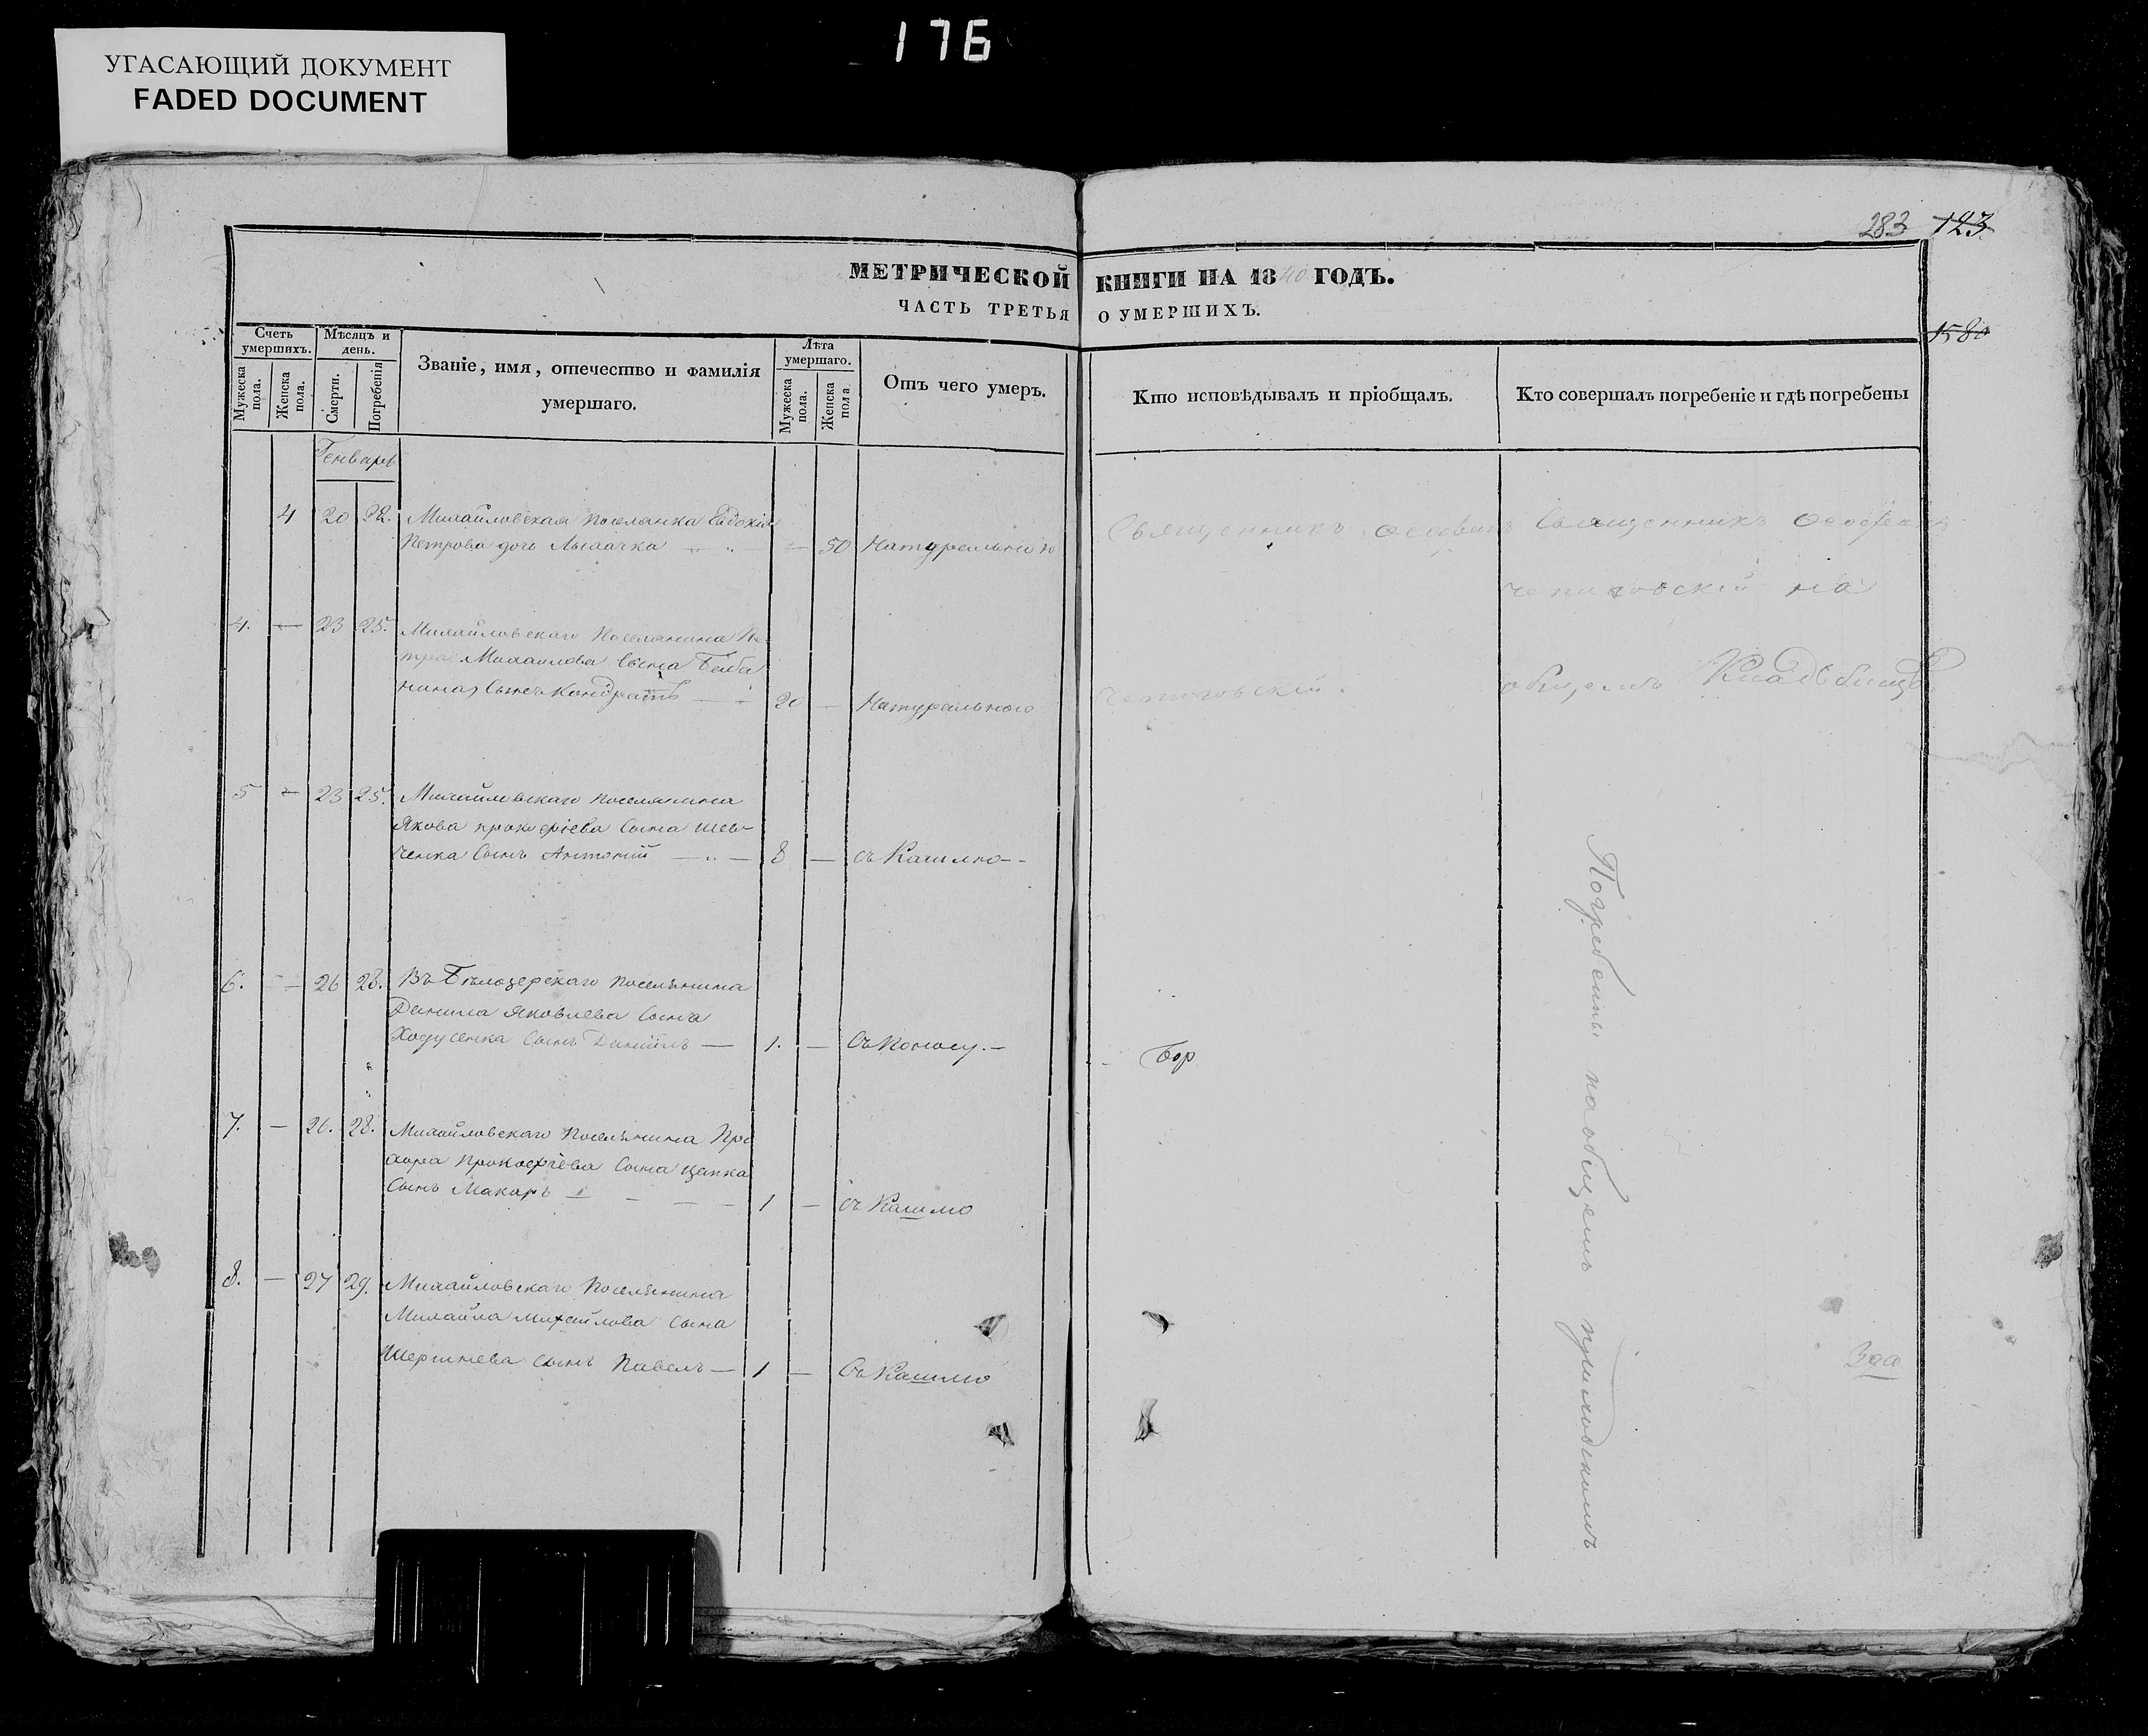 176
УГАСАЮЩИЙ ДОКУМЕНТ
FADED DOCUMENT
283 123
МЕТРИЧЕСКОЙ КНИГИ НА 1840 ГОДЪ.
ЧАСТЬ ТРЕТЬЯ О УМЕРШИХЪ.
1580
Счетъ умершихъ.
Мужеска пола.
Женска пола.
Мѣсяцъ и день.
Смерти.
Погребенія
Званіе, имя, отечество и фамилія умершаго.
Лѣта умершаго.
Мужеска пола.
Женска пола
Отъ чего умеръ.
Кто исповѣдывалъ и пріобщалъ.
Кто совершалъ погребеніе и гдѣ погребены
Генварь
4 20 22. Михайловская поселянка Евдокія
Петрова дочь — — 50 Натурально
Священникъ Священникъ
на
4. — 23 25. Михайловскаго Поселянина Пе-
тра Михаилова Сына
Сынъ Кондратъ — 20 — Натурального
общемъ Кладбищѣ
5 — 23 25. Михайловскаго поселянина
Якова прокофіева Сына шев-
ченка Сынъ Антоній — 8 — съ Кашлю
6. — 26 28. Въ Бѣлозерскаго поселянина
Данила Яковлева Сына
Ходусенка Сынъ Даніилъ — 1. — Съ Поносу.
7. — 26. 28. Михайловскаго Поселянина Про
хора Прокофіева Сына цапка
Сынъ Макаръ — 1 — съ Кашлю
8. — 27 29. Михайловскаго Поселянина
Михайла Михайлова Сына
Сынъ Павелъ — 1 — Съ Кашлю
Погребены на общемъ приходскомъ